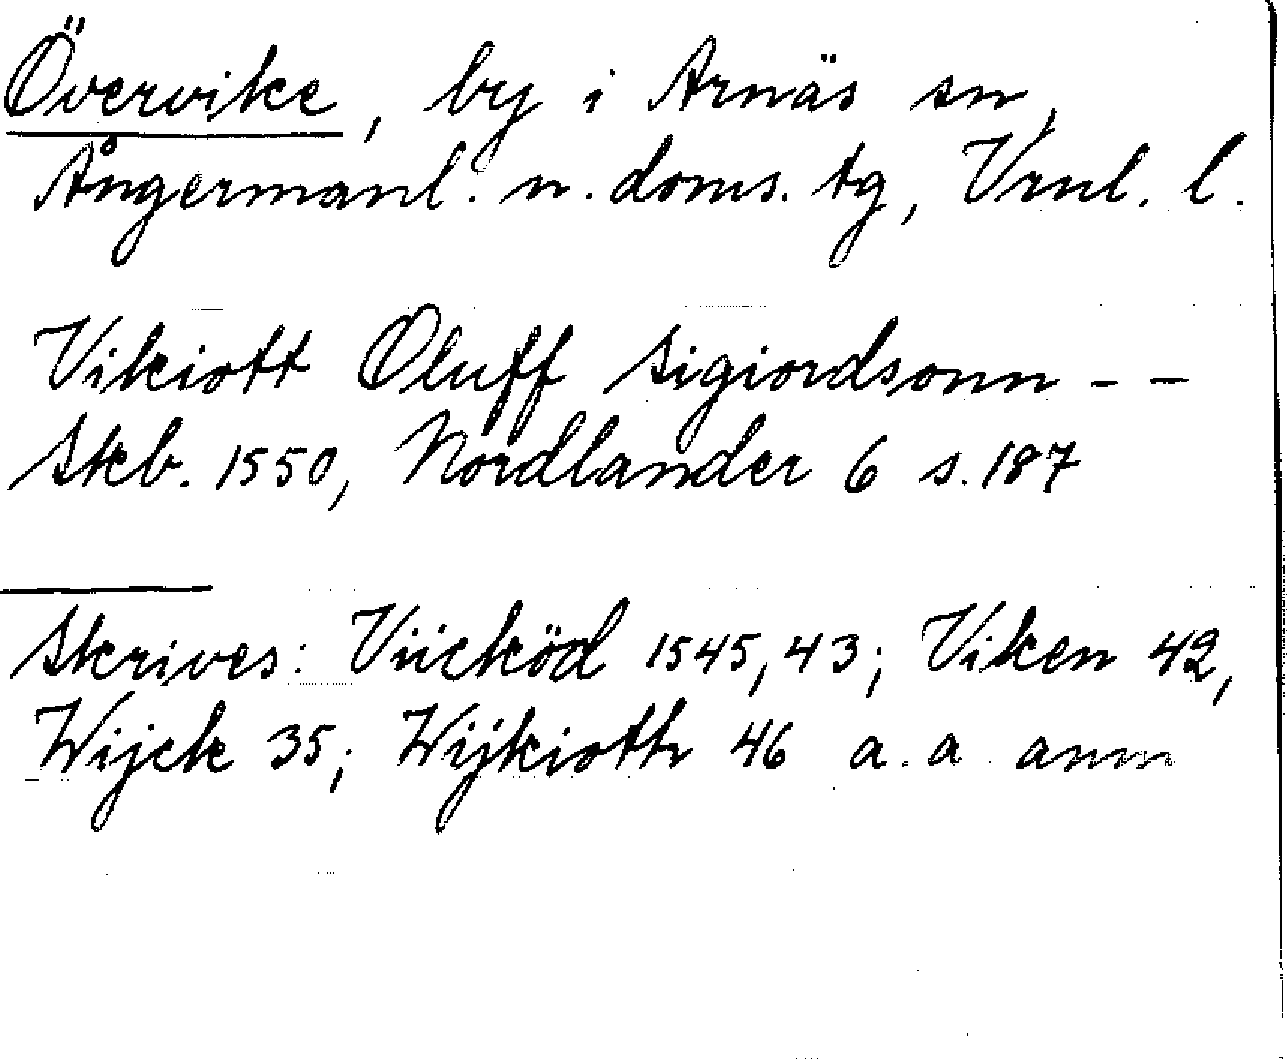 Övervike, by i Arnäs sn,
Ångermanl. n. doms. tg, Vrnl. l.
Vikiott Oluff Sigiordsonn - -
Skb. 1550, Nordlander 6 s. 187
Skrives: Viicköd 1545, 43; Viken 42,
Wijck 35; Wijkioth 46 a. a anm